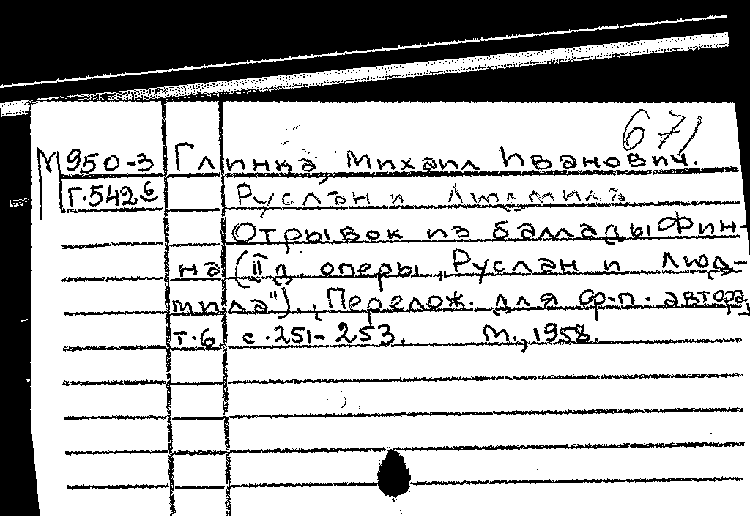 671
М950-3 Глинка, Михаил Иванович.
Г.542 Руслан и Людмила
Отрывок из баллады Фин-
на (II д. оперы „Руслан и Люд-
мила"). Перелож. для ф-п. автора,
т.6 с.251-253. М., 1958.